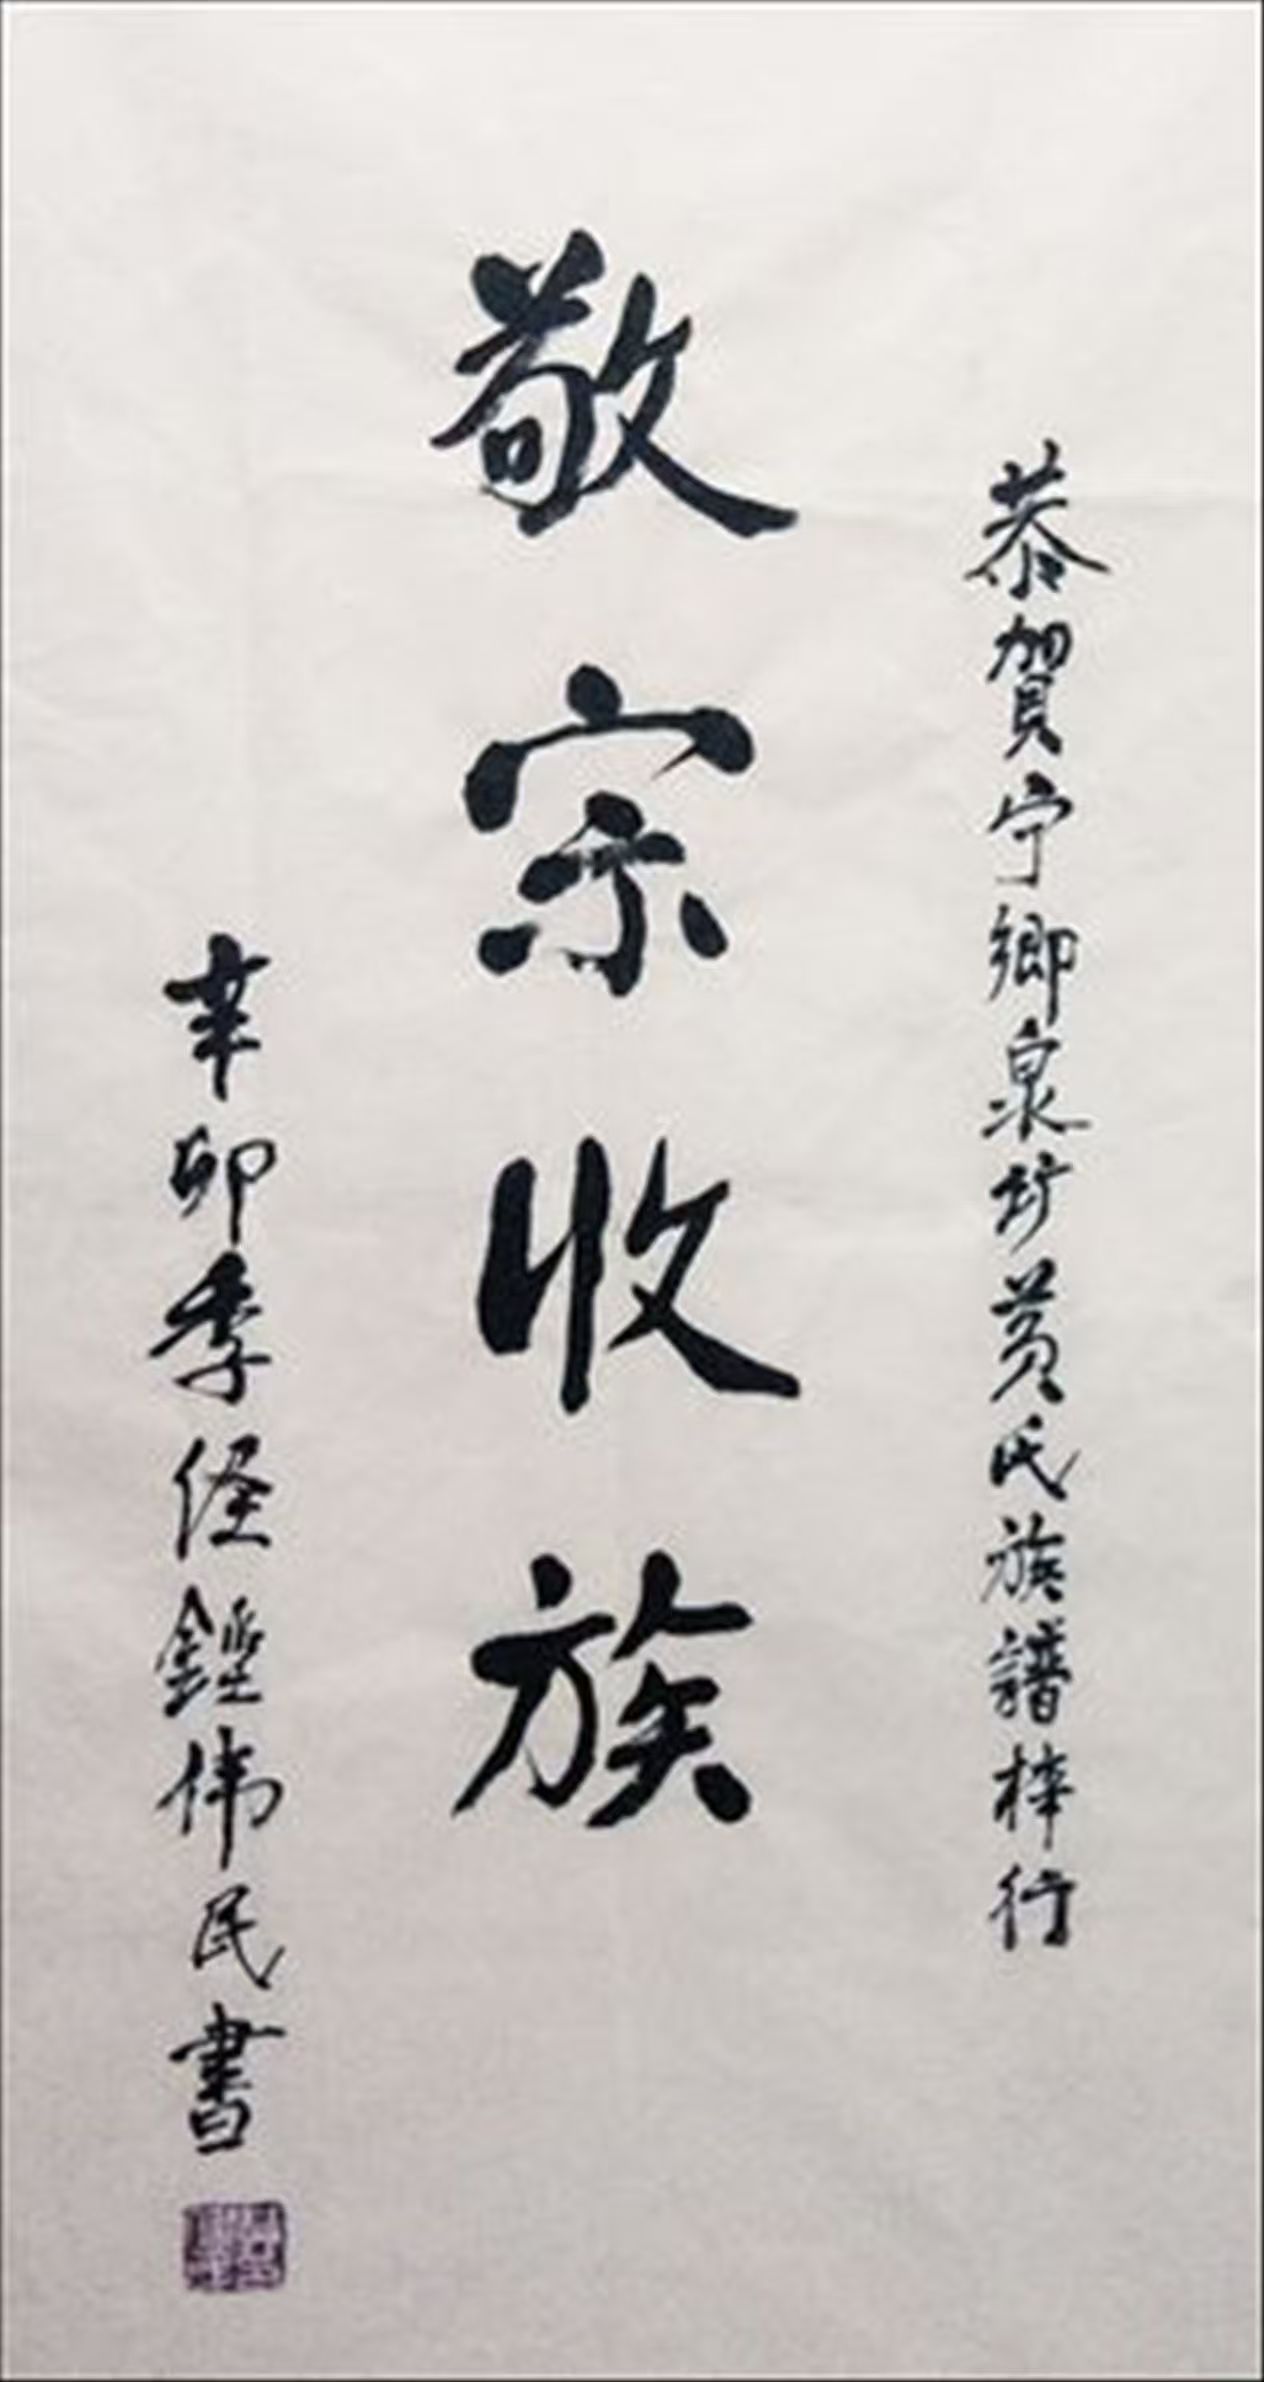 恭賀宁鄉泉圹黄氏族譜梓行
敬宗收族
辛卯季伟民書